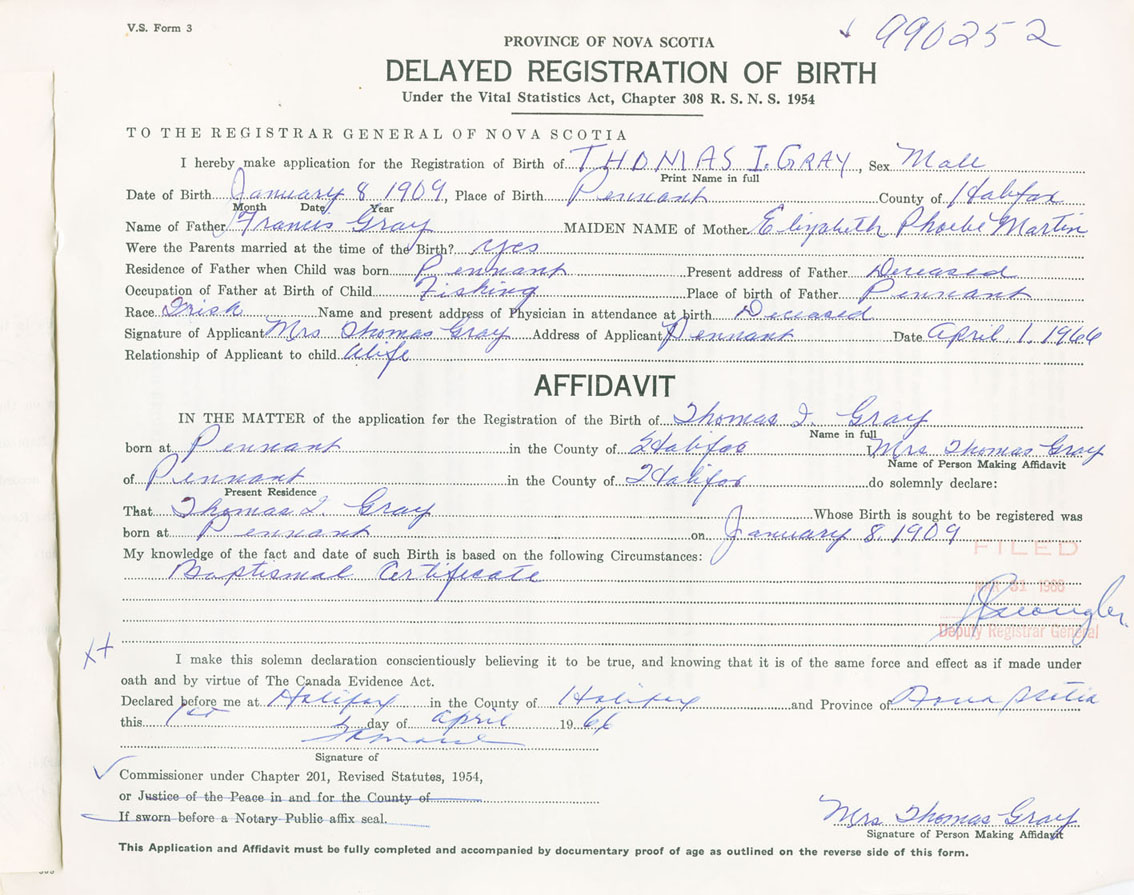 V.S. Form 3
990252
PROVINCE OF NOVA SCOTIA
DELAYED REGISTRATION OF BIRTH
Under the Vital Statistics Act, Chapter 308 R. S. N. S. 1954
TO THE REGISTRAR GENERAL OF NOVA SCOTIA
I hereby make application for the Registration of Birth of THOMAS I. GRAY, Sex Male
Print Name in full
Date of Birth January 8 1909, Place of Birth Pennant County of Halifax
Month Date Year
Name of Father Francis Gray MAIDEN NAME of Mother Elizabeth Phoebe Martin
Were the Parents married at the time of the Birth? yes
Residence of Father when Child was born Pennant Present address of Father Deceased
Occupation of Father at Birth of Child Fishing Place of birth of Father Pennant
Race Irish Name and present address of Physician in attendance at birth Deceased
Signature of Applicant Mrs Thomas Gray Address of Applicant Pennant Date April 1, 1966
Relationship of Applicant to child Wife
AFFIDAVIT
IN THE MATTER of the application for the Registration of the Birth of Thomas I. Gray
Name in full
born at Pennant in the County of Halifax I, Mrs Thomas Gray
Name of Person Making Affidavit
of Pennant in the County of Halifax do solemnly declare:
Present Residence
That Thomas I. Gray Whose Birth is sought to be registered was
born at Pennant on January 8, 1909
My knowledge of the fact and date of such Birth is based on the following Circumstances:
FILED
Baptismal Certificate
Deputy Registrar General
I make this solemn declaration conscientiously believing it to be true, and knowing that it is of the same force and effect as if made under
oath and by virtue of The Canada Evidence Act.
Declared before me at Halifax in the County of Halifax and Province of Nova Scotia
this 1st day of April 1966
Signature of
Commissioner under Chapter 201, Revised Statutes, 1954,
or Justice of the Peace in and for the County of
If sworn before a Notary Public affix seal.
Mrs Thomas Gray
Signature of Person Making Affidavit
This Application and Affidavit must be fully completed and accompanied by documentary proof of age as outlined on the reverse side of this form.